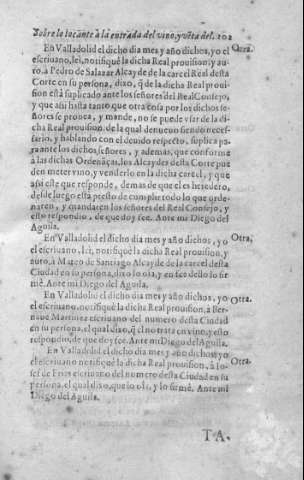 Sobre lo tocante à la entrada del vino, y vẽta del. 202
En Valladolid el dicho dia mes y año dichos, yo el Otra.
escriuano, lei, notifiquè la dicha Real prouision, y au
to, à Pedro de Salazar Alcayde de la carcel Real desta
Corte en su persona, dixo, q̃ de la dicha Real proui
sion està suplicado ante los señores del Real Consejo,
y que assi hasta tanto que otra cosa por los dichos se-
ñores se prouea, y mande, no se puede vsar de la di-
cha Real prouision, de la qual denueuo siendo neces-
sario, y hablando con el deuido respecto, suplica pa
ra ante los dichos señores, y ademas, que conforme
à las dichas Ordenãças, los Alcaydes desta Corte pue
den meter vino, y venderlo en la dicha carcel, y que
assi este que responde, demas de que el es heredero,
desde luego està presto de cumplir todo lo que orde
naren, y mandaren los señores del Real Consejo, y
esto respondio, de que doy fee. Ante mi Diego del
Aguila.
En Valladolid el dicho dia mes y año dichos, yo Otra.
el escriuano, lei, notifiquè la dicha Real prouision, y
auto, à Mateo de Santiago Alcayde de la carcel desta
Ciudad en su persona, dixo lo oìa, y en fee dello lo fir
mè. Ante mi Diego del Aguila.
En Valladolid el dicho dia mes y año dichos, yo Otra.
el escriuano, notifiquè la dicha Real prouision, à Ber-
naue Martinez escriuano del numero desta Ciudad
en su persona, el qual dixo, q̃ el no trata en vino, y esto
respondio, de que doy fee. Ante mi Diego del Aguila.
En Valladolid el dicho dia mes y año dichos, yo Otra.
el escriuano notifiquè la dicha Real prouision, à Io-
sef de Frias escriuano del numero desta Ciudad en su
persona, el qual dixo, que lo oìa, y lo firmè. Ante mi
Diego del Aguila.
TA.